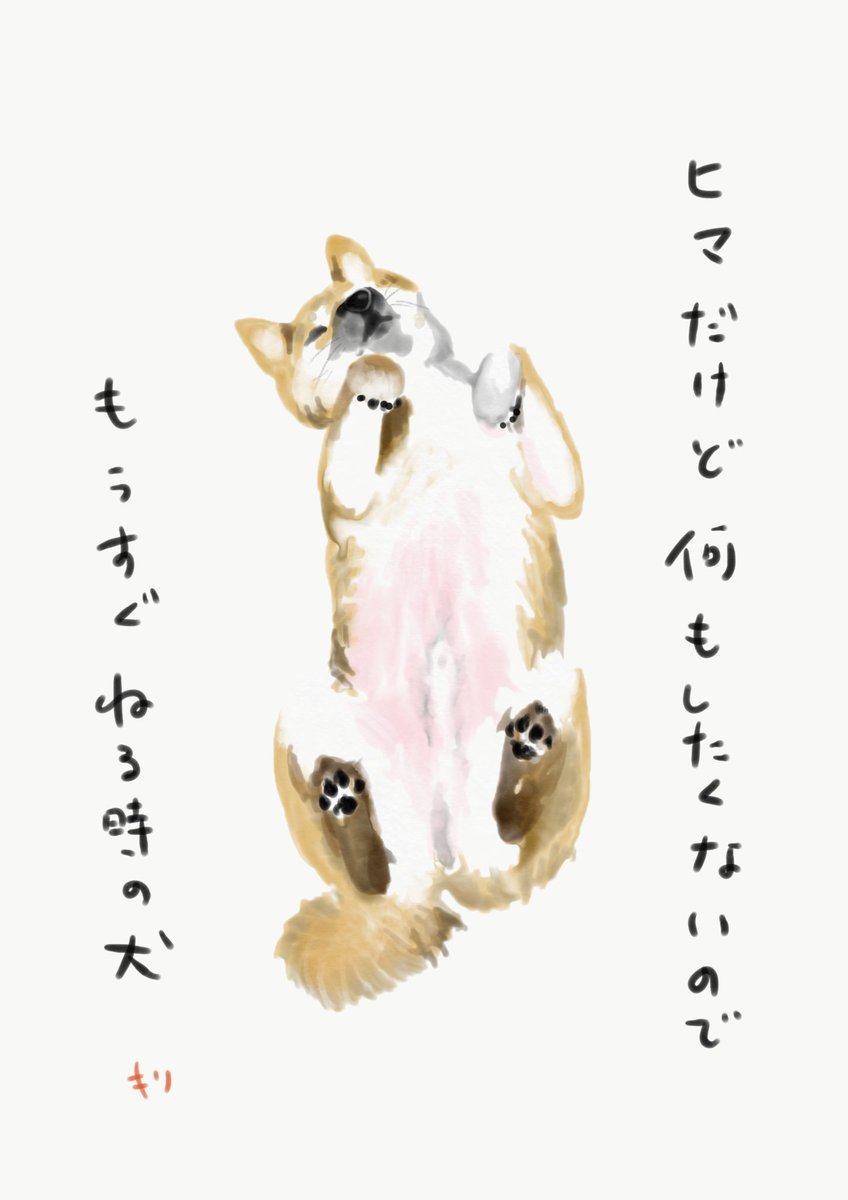 ヒマだけど何もしたくないので
もうすぐねる時の犬
キリ